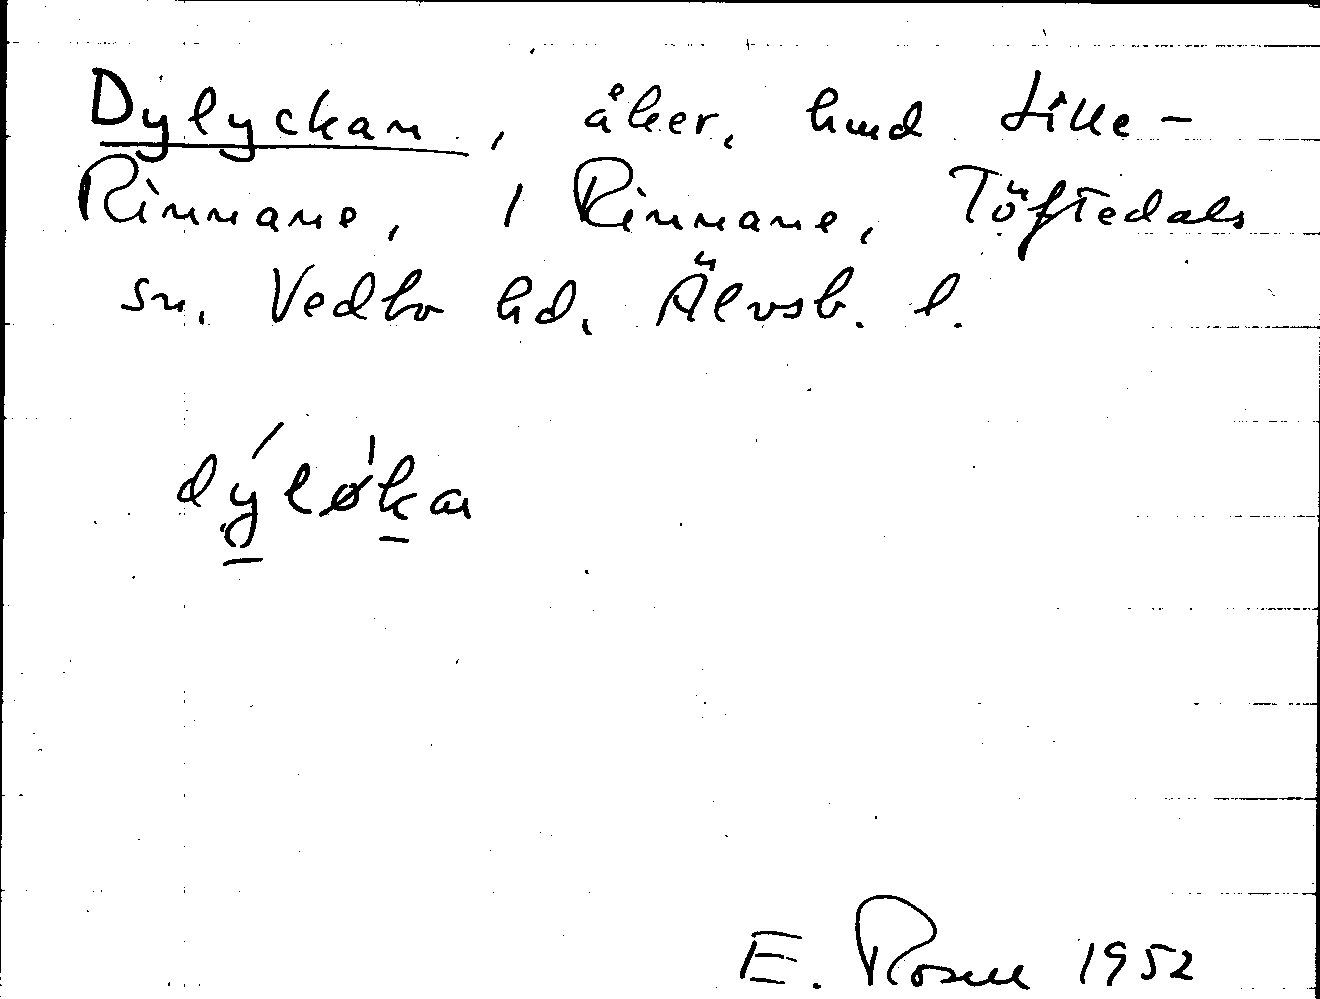 Dylyckan, åker, hmd Lille-
Rinnane, 1 Rinnane, Töftedals
sn. Vedbo hd. Älvsb. l.
dýløka
E. Rosell 1952